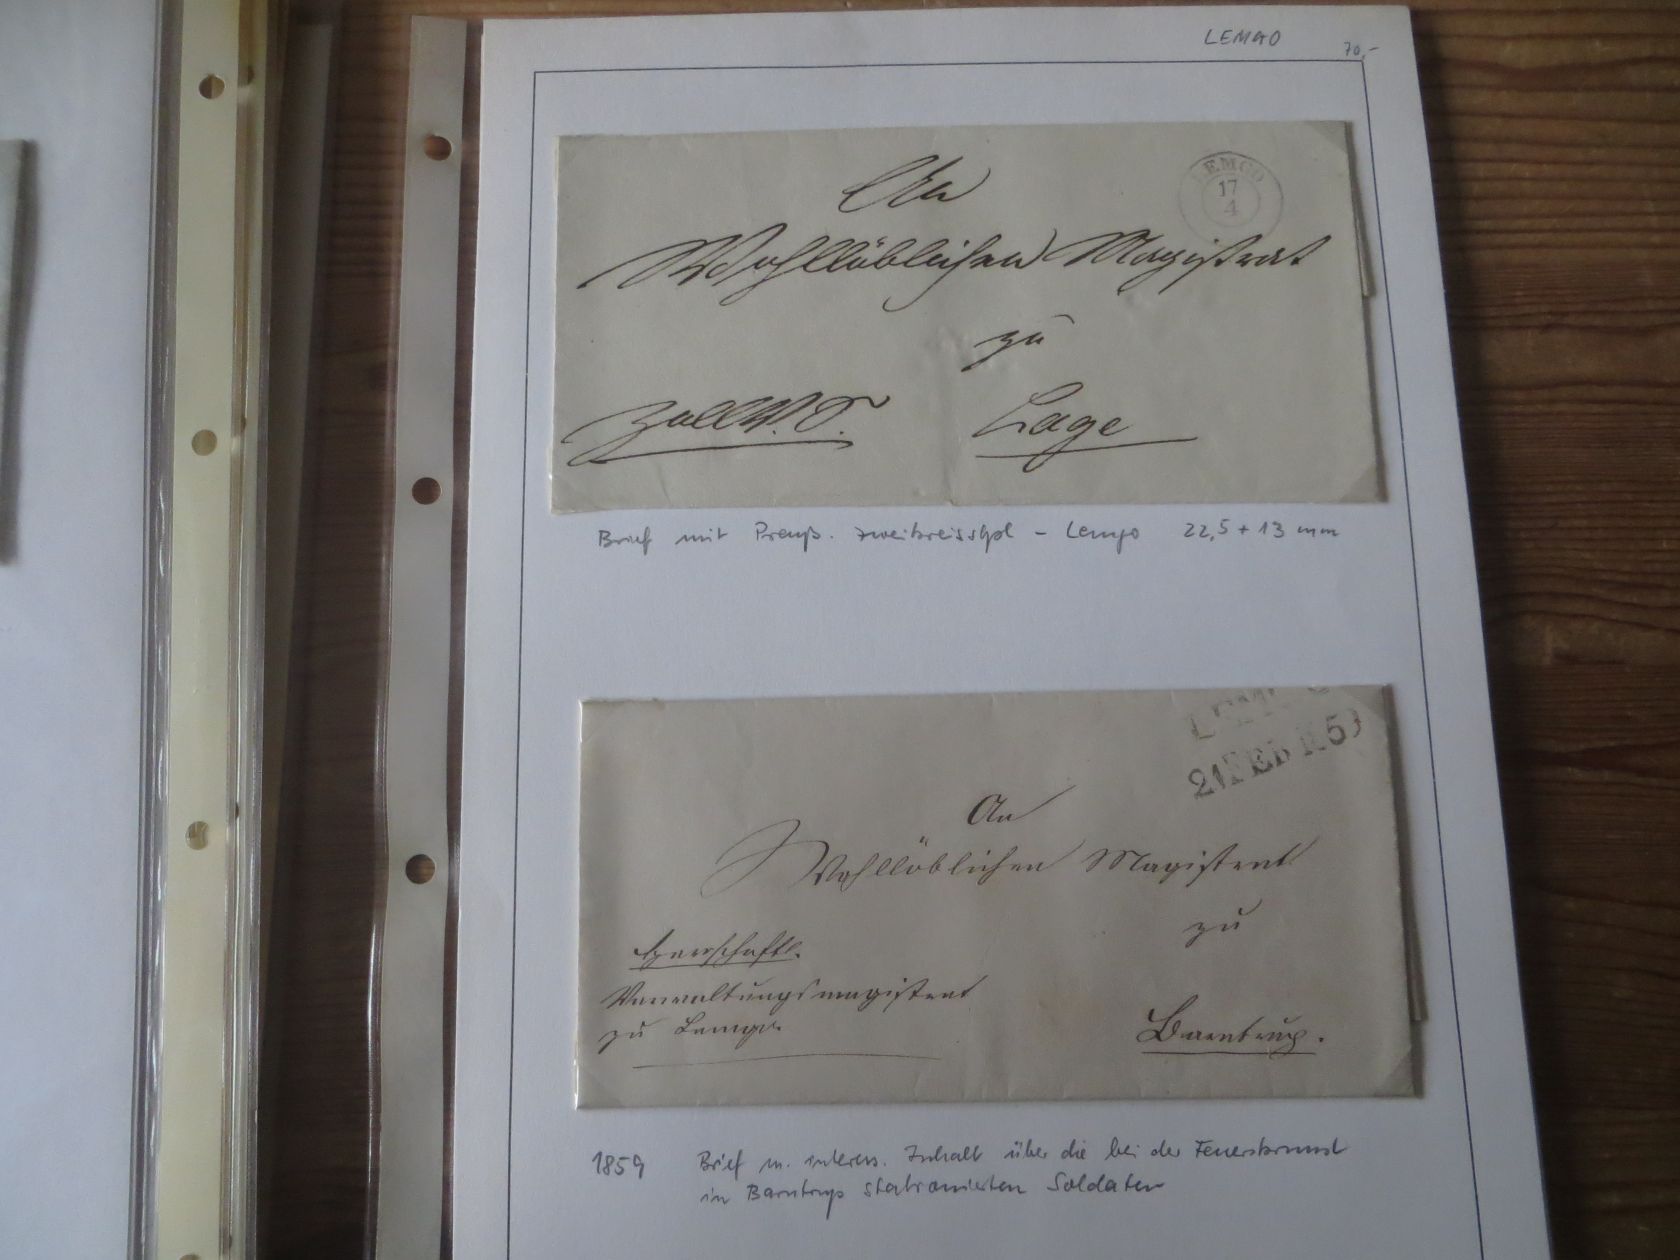 LEMGO
70,-
LEMGO
17
4
An
Wohllöblichen Magistrat
zu
Lage
Brief mit Preuß. Zweikreisstpl - Lemgo 22,5 + 13 mm
21 FEBR 59
An
Wohllöblichen Magistrat
zu
Herrschaftl.
Verwaltungsmagistrat
zu Lemgo
Barntrup.
1859 Brief m. interess. Inhalt über die bei der Feuersbrunst
in Barntrup stationierten Soldaten